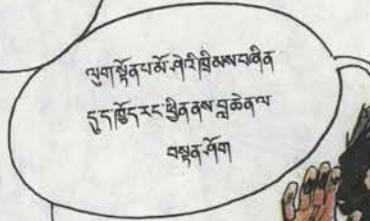 ལུག་སྟོན་པ་མོ་ཤེ་རི་ཁྲིམས་བཞིན
ད་ད་ཁྱོད་རང་ཕྱིན་ནས་བླ་ཆེན་ལ
བསྟན་ཤོག